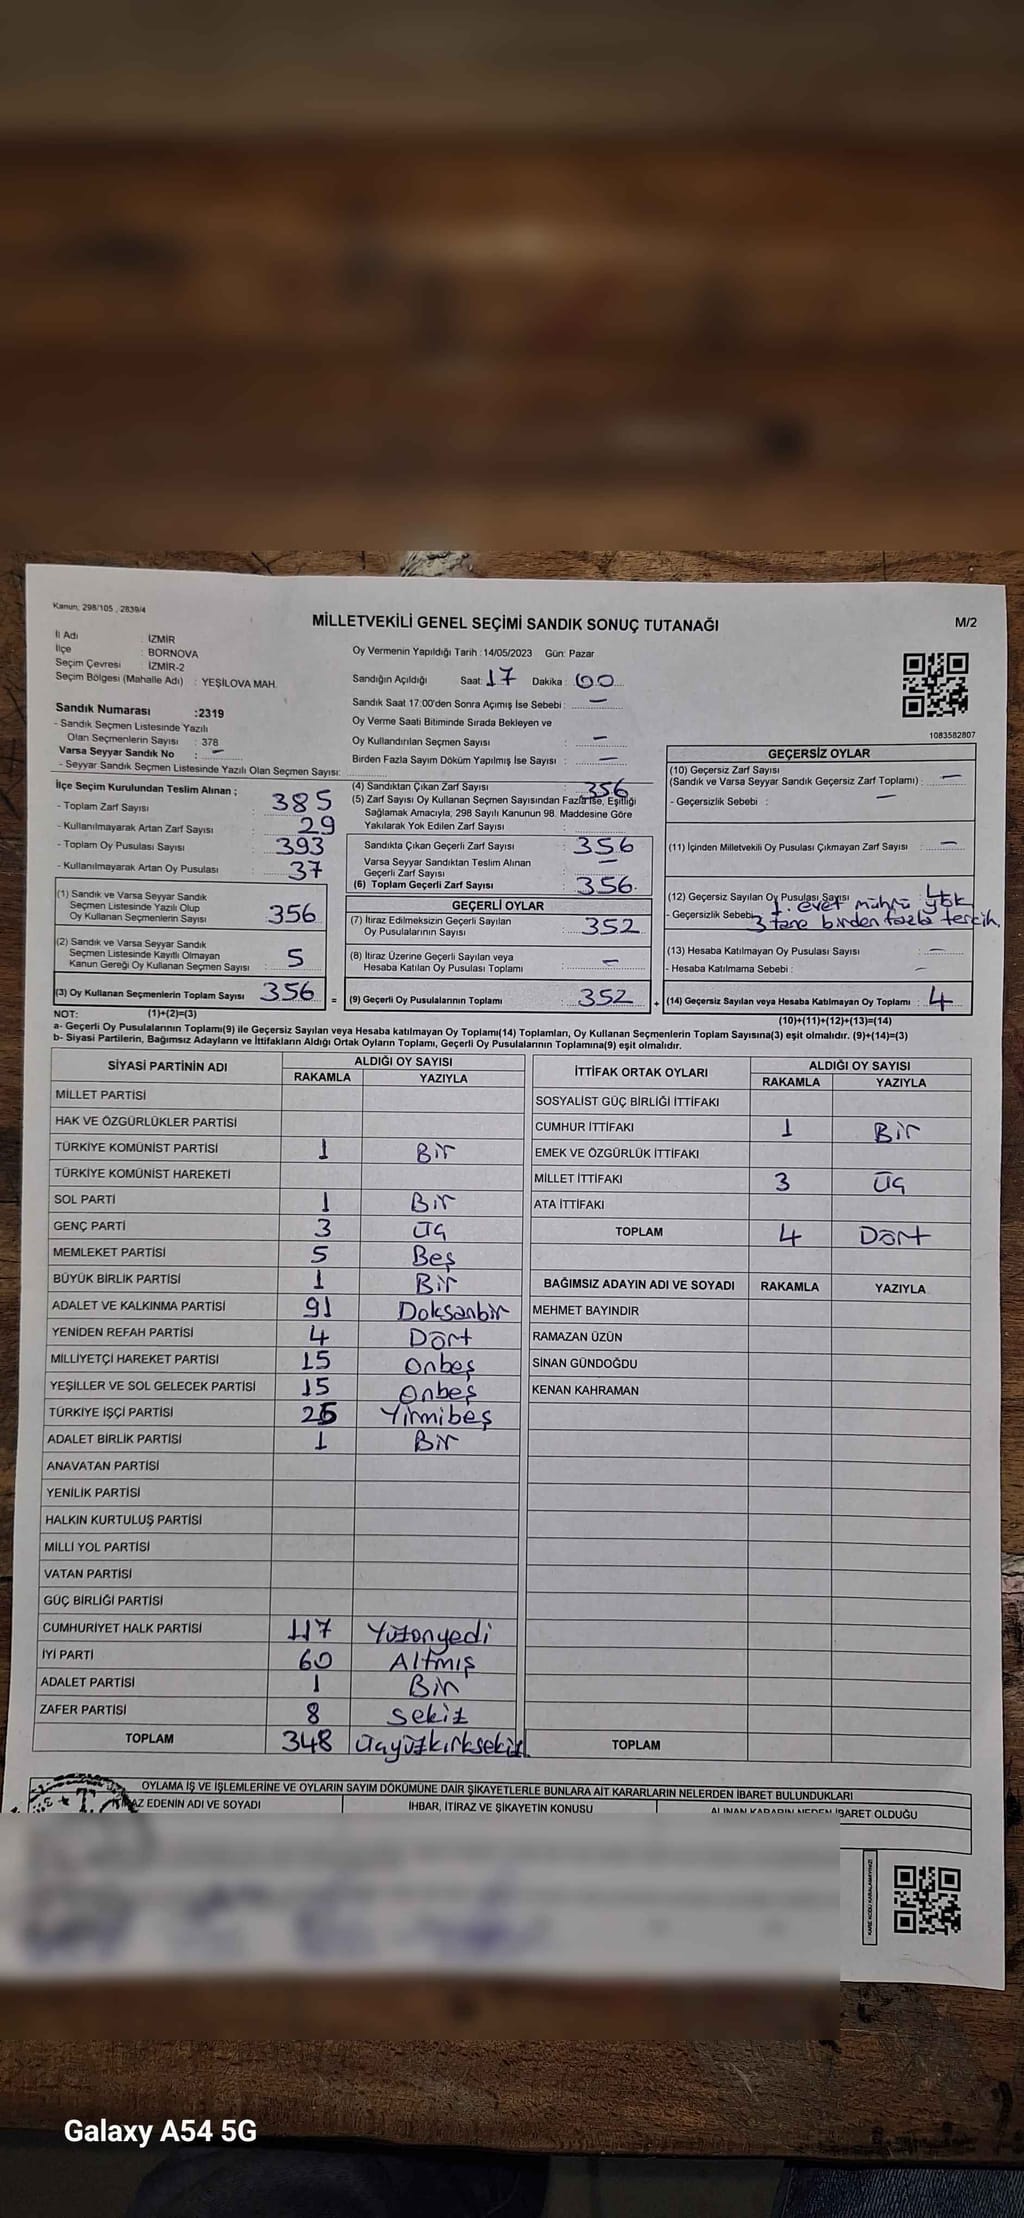 Kanun, 298/105 , 2839/4
MİLLETVEKİLİ GENEL SEÇİMİ SANDIK SONUÇ TUTANAĞI
M/2
İl Adı : İZMİR
İlçe : BORNOVA
Seçim Çevresi : İZMİR-2
Seçim Bölgesi (Mahalle Adı) : YEŞİLOVA MAH.
Oy Vermenin Yapıldığı Tarih : 14/05/2023 Gün: Pazar
Sandığın Açıldığı Saat: 17 Dakika : 00
Sandık Saat 17:00'den Sonra Açımış İse Sebebi : —
Oy Verme Saati Bitiminde Sırada Bekleyen ve
Oy Kullandırılan Seçmen Sayısı : —
Birden Fazla Sayım Döküm Yapılmış İse Sayısı : —
1083582807
Sandık Numarası :2319
- Sandık Seçmen Listesinde Yazılı
Olan Seçmenlerin Sayısı : 378
Varsa Seyyar Sandık No : —
- Seyyar Sandık Seçmen Listesinde Yazılı Olan Seçmen Sayısı:
İlçe Seçim Kurulundan Teslim Alınan ;
- Toplam Zarf Sayısı : 385
- Kullanılmayarak Artan Zarf Sayısı : 29
- Toplam Oy Pusulası Sayısı : 393
- Kullanılmayarak Artan Oy Pusulası : 37
(1) Sandık ve Varsa Seyyar Sandık
Seçmen Listesinde Yazılı Olup
Oy Kullanan Seçmenlerin Sayısı 356
(2) Sandık ve Varsa Seyyar Sandık
Seçmen Listesinde Kayıtlı Olmayan
Kanun Gereği Oy Kullanan Seçmen Sayısı 5
(3) Oy Kullanan Seçmenlerin Toplam Sayısı 356 =
(4) Sandıktan Çıkan Zarf Sayısı : 356
(5) Zarf Sayısı Oy Kullanan Seçmen Sayısından Fazla İse, Eşitliği
Sağlamak Amacıyla, 298 Sayılı Kanunun 98. Maddesine Göre
Yakılarak Yok Edilen Zarf Sayısı :
Sandıkta Çıkan Geçerli Zarf Sayısı : 356
Varsa Seyyar Sandıktan Teslim Alınan
Geçerli Zarf Sayısı : —
(6) Toplam Geçerli Zarf Sayısı : 356
GEÇERLİ OYLAR
(7) İtiraz Edilmeksizin Geçerli Sayılan
Oy Pusulalarının Sayısı : 352
(8) İtiraz Üzerine Geçerli Sayılan veya
Hesaba Katılan Oy Pusulası Toplamı : —
(9) Geçerli Oy Pusulalarının Toplamı : 352 +
GEÇERSİZ OYLAR
(10) Geçersiz Zarf Sayısı
(Sandık ve Varsa Seyyar Sandık Geçersiz Zarf Toplamı) : —
- Geçersizlik Sebebi : —
(11) İçinden Milletvekili Oy Pusulası Çıkmayan Zarf Sayısı : —
(12) Geçersiz Sayılan Oy Pusulası Sayısı : 4
- Geçersizlik Sebebi 1. evet mührü yok
3 tane birden fazla tercih.
(13) Hesaba Katılmayan Oy Pusulası Sayısı : —
- Hesaba Katılmama Sebebi : —
(14) Geçersiz Sayılan veya Hesaba Katılmayan Oy Toplamı : 4
NOT: (1)+(2)=(3)
(10)+(11)+(12)+(13)=(14)
a- Geçerli Oy Pusulalarının Toplamı(9) ile Geçersiz Sayılan veya Hesaba katılmayan Oy Toplamı(14) Toplamları, Oy Kullanan Seçmenlerin Toplam Sayısına(3) eşit olmalıdır. (9)+(14)=(3)
b- Siyasi Partilerin, Bağımsız Adayların ve İttifakların Aldığı Ortak Oyların Toplamı, Geçerli Oy Pusulalarının Toplamına(9) eşit olmalıdır.
SİYASİ PARTİNİN ADI
ALDIĞI OY SAYISI
RAKAMLA YAZIYLA
MİLLET PARTİSİ
HAK VE ÖZGÜRLÜKLER PARTİSİ
TÜRKİYE KOMÜNİST PARTİSİ 1 Bir
TÜRKİYE KOMÜNİST HAREKETİ
SOL PARTİ 1 Bir
GENÇ PARTİ 3 Üç
MEMLEKET PARTİSİ 5 Beş
BÜYÜK BİRLİK PARTİSİ 1 Bir
ADALET VE KALKINMA PARTİSİ 91 Doksanbir
YENİDEN REFAH PARTİSİ 4 Dört
MİLLİYETÇİ HAREKET PARTİSİ 15 Onbeş
YEŞİLLER VE SOL GELECEK PARTİSİ 15 Onbeş
TÜRKİYE İŞÇİ PARTİSİ 25 Yirmibeş
ADALET BİRLİK PARTİSİ 1 Bir
ANAVATAN PARTİSİ
YENİLİK PARTİSİ
HALKIN KURTULUŞ PARTİSİ
MİLLİ YOL PARTİSİ
VATAN PARTİSİ
GÜÇ BİRLİĞİ PARTİSİ
CUMHURİYET HALK PARTİSİ 117 Yüzonyedi
İYİ PARTİ 60 Altmış
ADALET PARTİSİ 1 Bir
ZAFER PARTİSİ 8 Sekiz
TOPLAM 348 Üçyüzkırksekiz
İTTİFAK ORTAK OYLARI
ALDIĞI OY SAYISI
RAKAMLA YAZIYLA
SOSYALİST GÜÇ BİRLİĞİ İTTİFAKI
CUMHUR İTTİFAKI 1 Bir
EMEK VE ÖZGÜRLÜK İTTİFAKI
MİLLET İTTİFAKI 3 Üç
ATA İTTİFAKI
TOPLAM 4 Dört
BAĞIMSIZ ADAYIN ADI VE SOYADI RAKAMLA YAZIYLA
MEHMET BAYINDIR
RAMAZAN ÜZÜN
SİNAN GÜNDOĞDU
KENAN KAHRAMAN
TOPLAM
OYLAMA İŞ VE İŞLEMLERİNE VE OYLARIN SAYIM DÖKÜMÜNE DAİR ŞİKAYETLERLE BUNLARA AİT KARARLARIN NELERDEN İBARET BULUNDUKLARI
EDENİN ADI VE SOYADI İHBAR, İTİRAZ VE ŞİKAYETİN KONUSU ALINAN KARARIN NEDEN İBARET OLDUĞU
Galaxy A54 5G